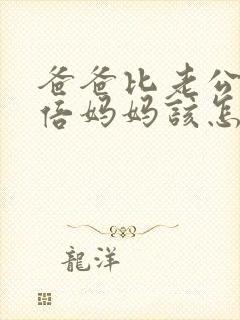 爸爸比老公
倍妈妈該怎
龍洋